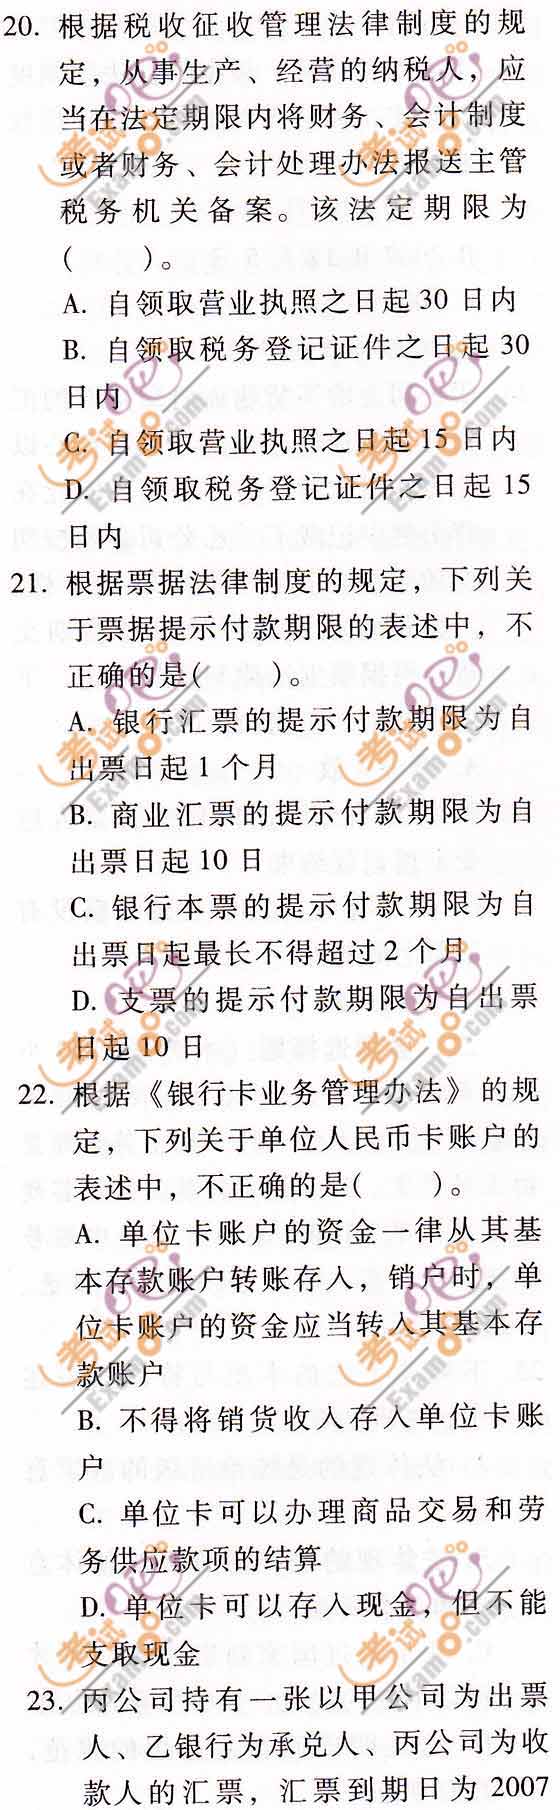 20. 根据税收征收管理法律制度的规
定，从事生产、经营的纳税人，应
当在法定期限内将财务、会计制度
或者财务、会计处理办法报送主管
税务机关备案。该法定期限为
(　　)。
A. 自领取营业执照之日起 30 日内
B. 自领取税务登记证件之日起 30
日内
C. 自领取营业执照之日起 15 日内
D. 自领取税务登记证件之日起 15
日内
21. 根据票据法律制度的规定，下列关
于票据提示付款期限的表述中，不
正确的是(　　)。
A. 银行汇票的提示付款期限为自
出票日起 1 个月
B. 商业汇票的提示付款期限为自
出票日起 10 日
C. 银行本票的提示付款期限为自
出票日起最长不得超过 2 个月
D. 支票的提示付款期限为自出票
日起 10 日
22. 根据《银行卡业务管理办法》的规
定，下列关于单位人民币卡账户的
表述中，不正确的是(　　)。
A. 单位卡账户的资金一律从其基
本存款账户转账存入，销户时，单
位卡账户的资金应当转入其基本存
款账户
B. 不得将销货收入存入单位卡账
户
C. 单位卡可以办理商品交易和劳
务供应款项的结算
D. 单位卡可以存入现金，但不能
支取现金
23. 丙公司持有一张以甲公司为出票
人、乙银行为承兑人、丙公司为收
款人的汇票，汇票到期日为 2007
考试吧
Exam8.com